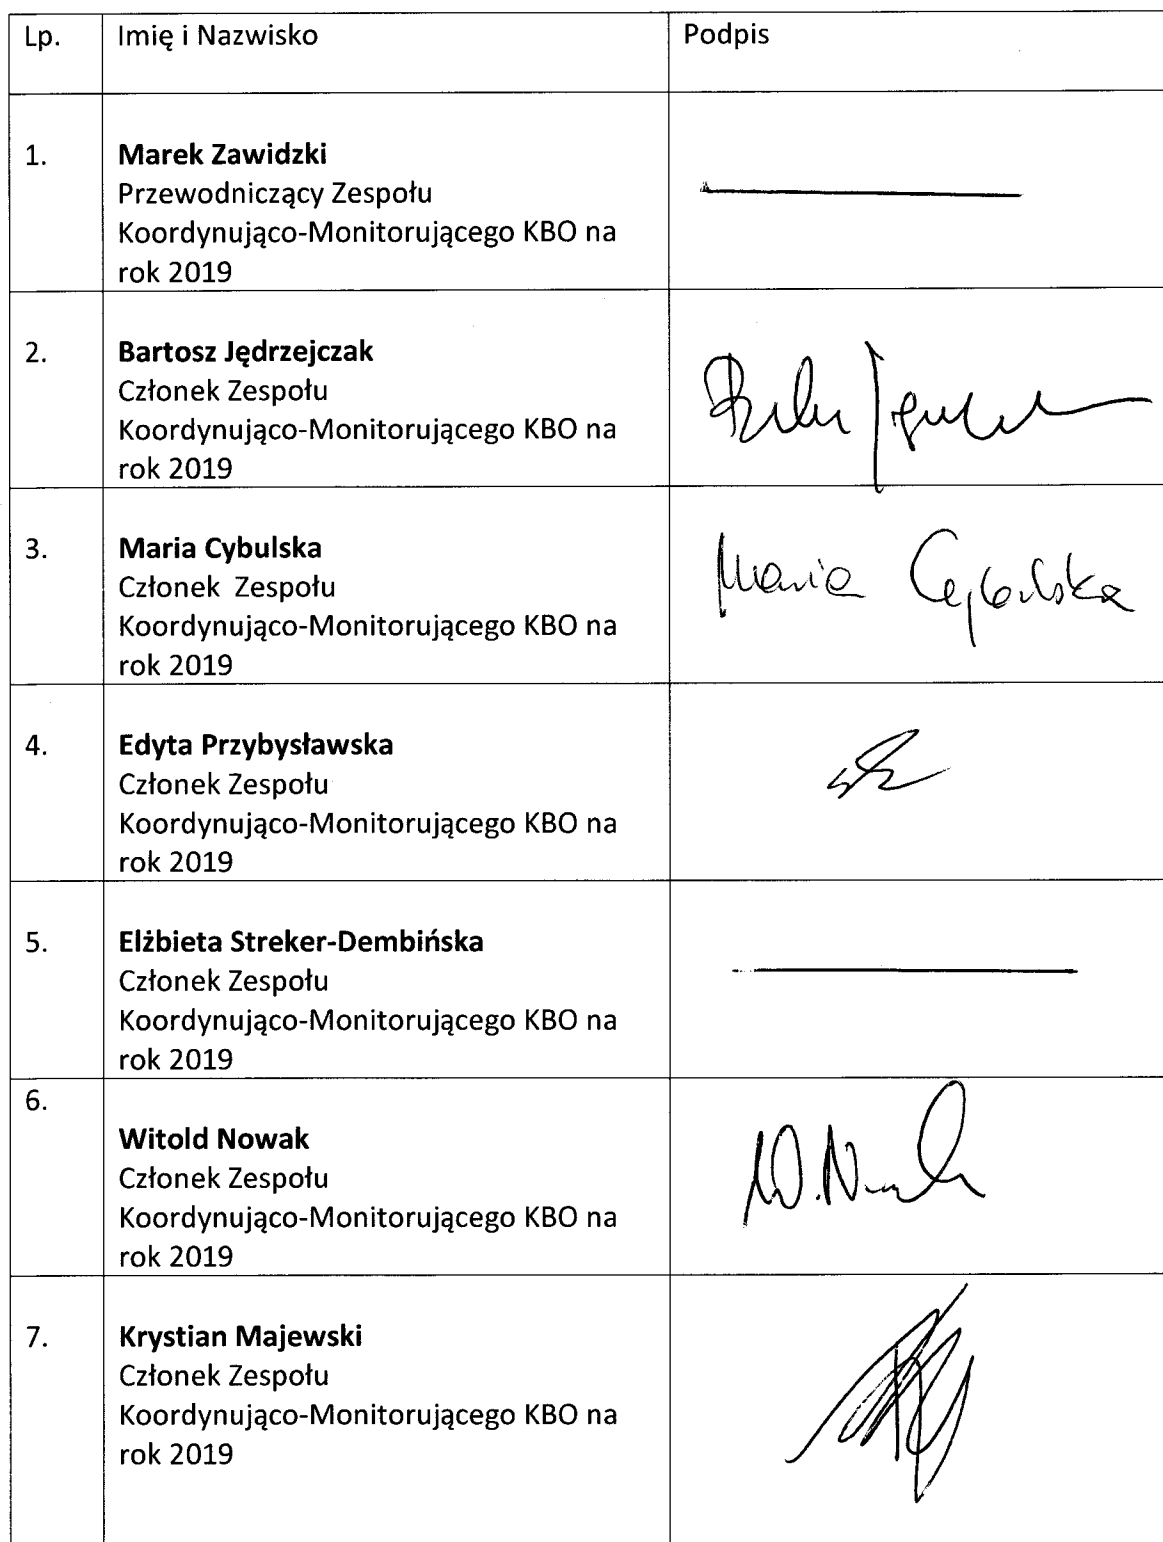 Lp. Imię i Nazwisko Podpis
1. Marek Zawidzki
Przewodniczący Zespołu
Koordynująco-Monitorującego KBO na
rok 2019
2. Bartosz Jędrzejczak
Członek Zespołu
Koordynująco-Monitorującego KBO na
rok 2019
3. Maria Cybulska Maria Cybulska
Członek Zespołu
Koordynująco-Monitorującego KBO na
rok 2019
4. Edyta Przybysławska
Członek Zespołu
Koordynująco-Monitorującego KBO na
rok 2019
5. Elżbieta Streker-Dembińska
Członek Zespołu
Koordynująco-Monitorującego KBO na
rok 2019
6.
Witold Nowak W. Nowak
Członek Zespołu
Koordynująco-Monitorującego KBO na
rok 2019
7. Krystian Majewski
Członek Zespołu
Koordynująco-Monitorującego KBO na
rok 2019